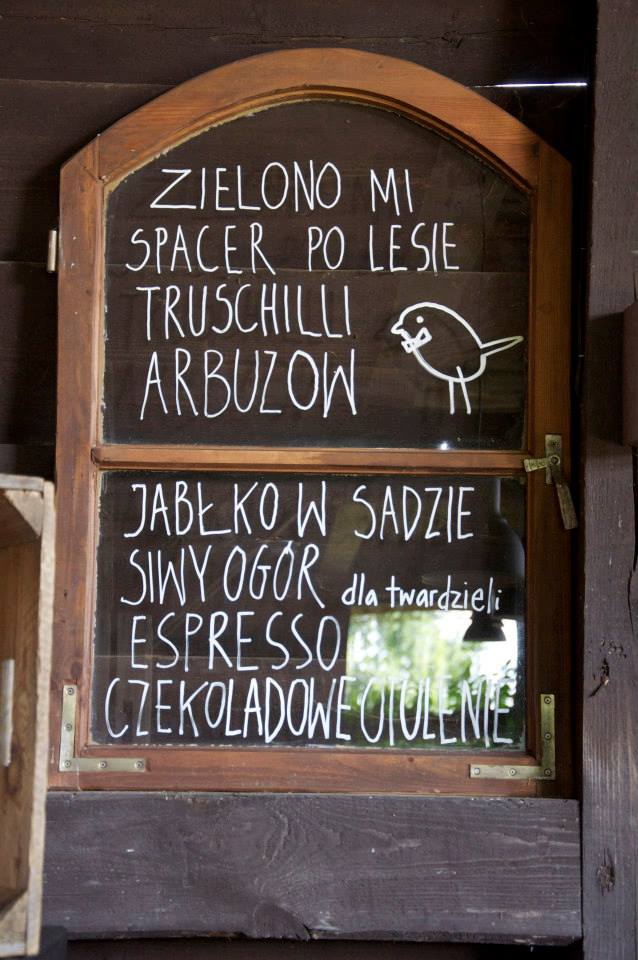 ZIELONO MI
SPACER PO LESIE
TRUSCHILLI
ARBUZOW
JABŁKO W SADZIE
SIWY OGÓR dla twardzieli
ESPRESSO
CZEKOLADOWE OTULENIE